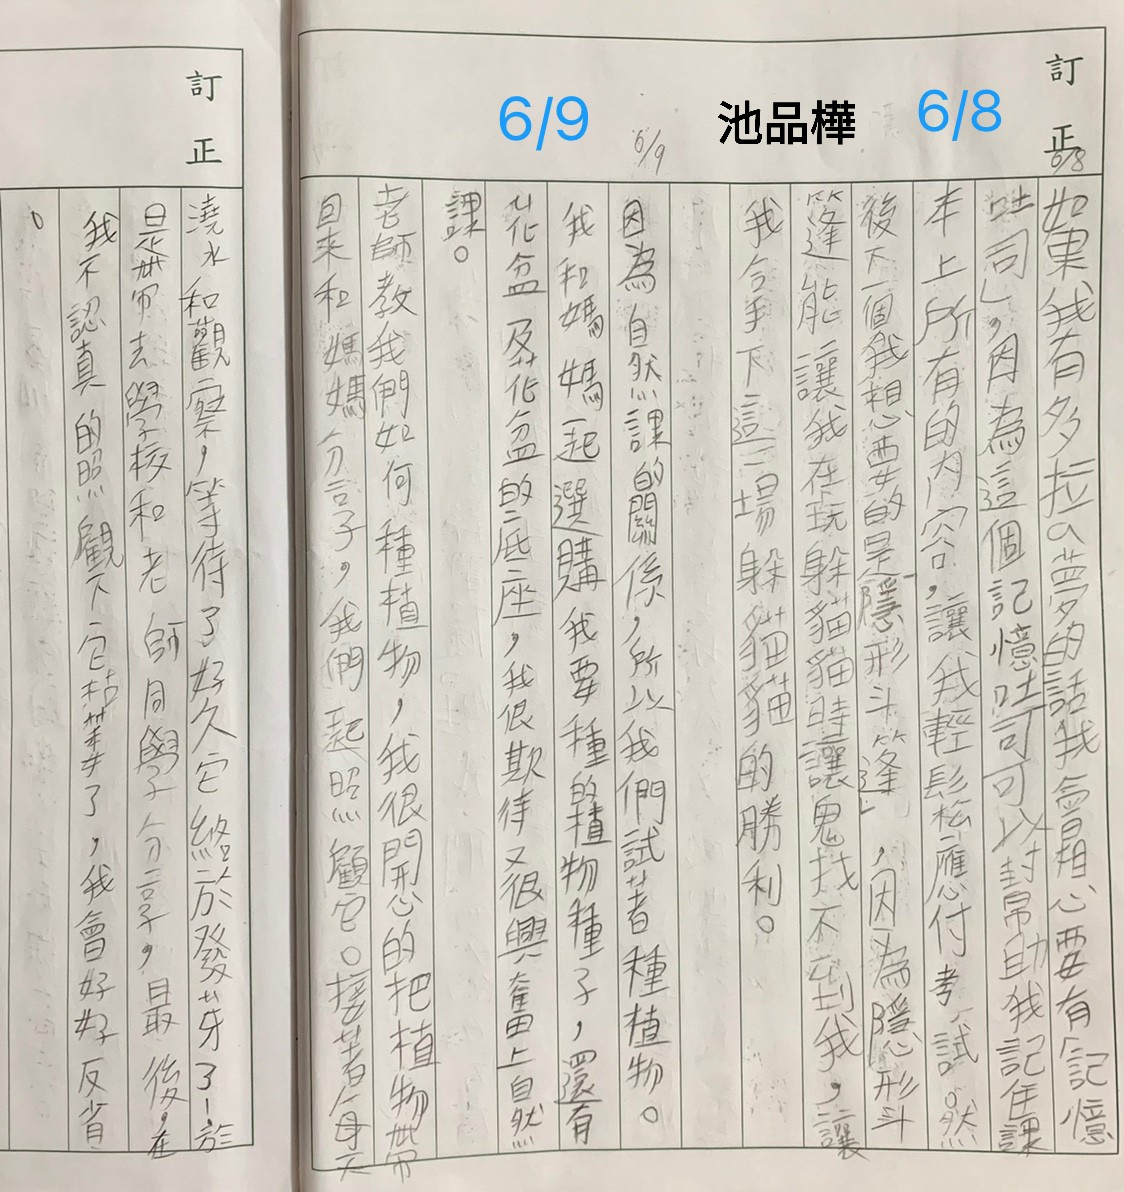 訂正
6/8
6/8
池品樺
6/9
6/9
如果我有多拉a夢的話我會想要有「記憶
吐司」,因為這個記憶吐司可以幫助我記住課
本上所有的內容,讓我輕鬆應付考試。然
後下一個我想要的是「隱形斗篷」,因為隱形斗
篷能讓我在玩躲貓貓時讓鬼找不到我,讓
我拿下這一場躲貓貓的勝利。
因為自然課的關係,所以我們試著種植物。
我和媽媽一起選購我要種的植物種子,還有
花盆及花盆的底座,我很欺待又很興奮上自然
課。
老師教我們如何種植物,我很開心的把植物帶
回來和媽媽分享,我們一起照顧它。接著每天
訂正
澆水和觀察,等待了好久它終於發芽了!於
是帶去學校和老師同學分享,最後,在
我不認真的照顧下它枯萎了,我會好好反省
。